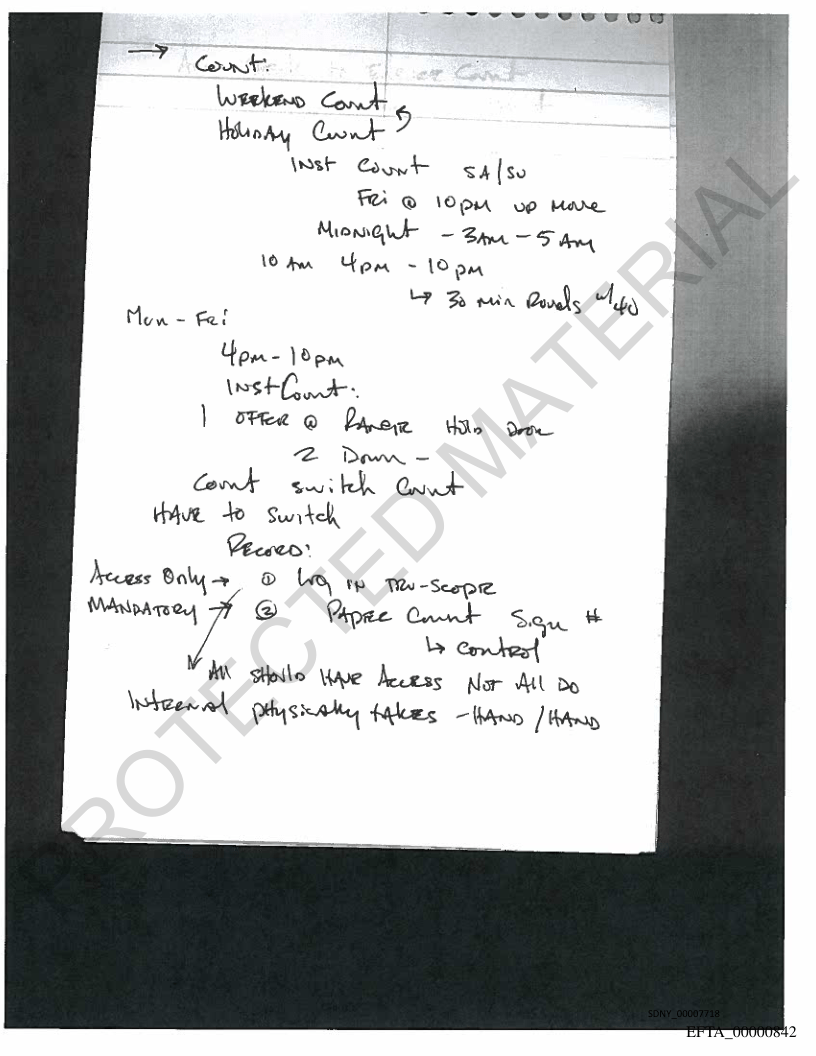 → Count:
WEEKEND Count
HOLIDAY Count
INST Count SA/SU
FRi @ 10 pm up move
MIDNIGHT - 3AM - 5 AM
10 AM 4pm - 10 pm
↳ 30 min Rounds w/
Mon - FRi
4pm - 10pm
INST Count:
1 OFFCR @ HOLD DOOR
2 Down -
Count switch Count
HAVE to switch
RECORD:
Access Only → ① Log IN TRU-SCOPE
MANDATORY → ② PAPER Count Sign #
↳ control
All SHOULD HAVE Access NOT All DO
INTERNAL physically takes - HAND / HAND
PROTECTED MATERIAL
SDNY_00007718
EFTA_00000842